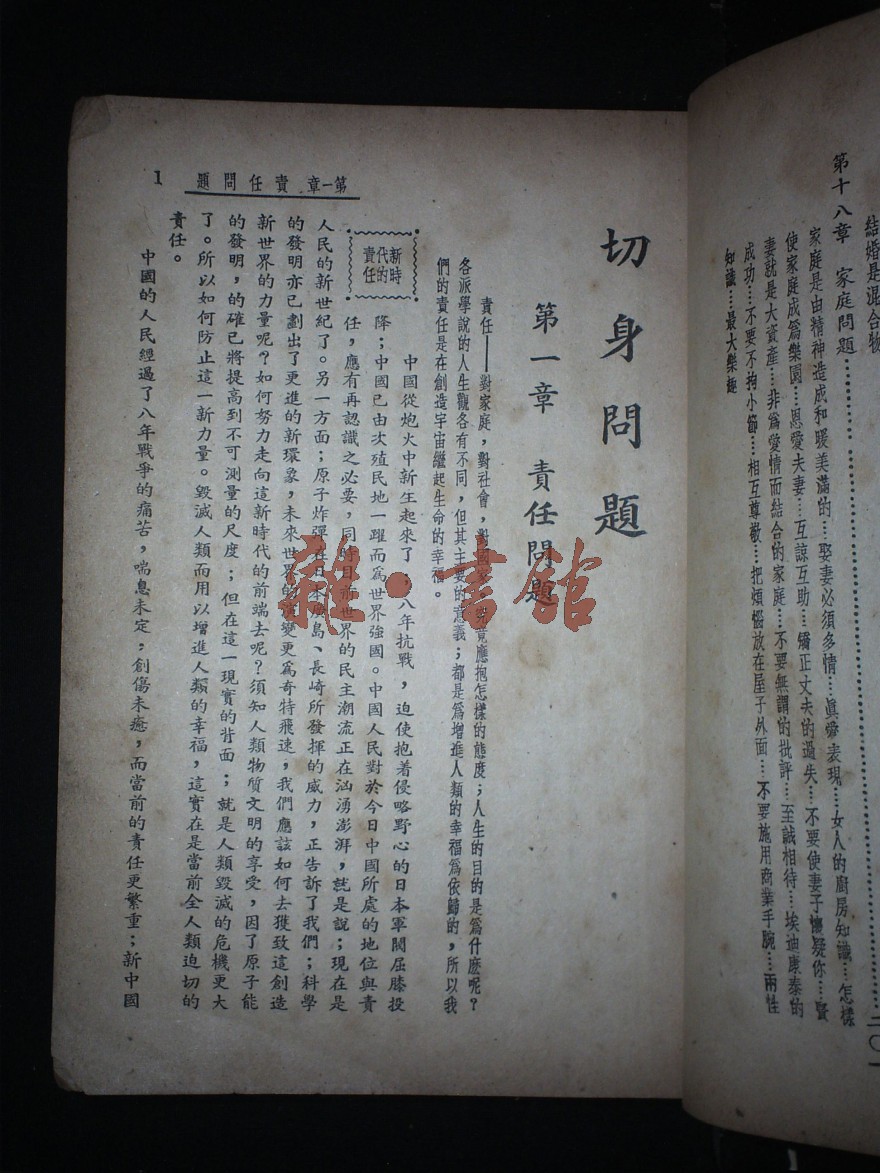 結婚是混合物
第十八章 家庭問題……二〇一
家庭是由精神造成和暖美滿的……娶妻必須多情……眞愛表現……女人的廚房知識……怎樣
使家庭成爲樂園……恩愛夫妻……互諒互助……矯正丈夫的過失……不要使妻子懷疑你……賢
妻就是大資產……非爲愛情而結合的家庭……不要無謂的批評……至誠相待……埃迪康泰的
成功……不要不拘小節……相互尊敬……把煩惱放在屋子外面……不要施用商業手腕……兩性
知識……最大樂趣
切身問題
第一章 責任問題
責任——對家庭，對社會，對國家，究竟應抱怎樣的態度；人生的目的是爲什麼呢？
各派學說的人生觀各有不同，但其主要的意義；都是爲增進人類的幸福爲依歸的，所以我
們的責任是在創造宇宙繼起生命的幸福。
新時代的責任
中國從炮火中新生起來了；八年抗戰，迫使抱着侵略野心的日本軍閥屈膝投
降；中國已由次殖民地一躍而爲世界強國。中國人民對於今日中國所處的地位與責
任，應有再認識之必要，同時目前世界的民主潮流正在汹湧澎湃，就是說；現在是
人民的新世紀了。另一方面；原子炸彈在日本廣島、長崎所發揮的威力，正告訴了我們；科學
的發明亦已劃出了更進的新環象，未來世界的演變更爲奇特飛速，我們應該如何去獲致這創造
新世界的力量呢？如何努力走向這新時代的前端去呢？須知人類物質文明的享受，因了原子能
的發明，的確已將提高到不可測量的尺度；但在這一現實的背面；就是人類毀滅的危機更大
了。所以如何防止這一新力量。毀滅人類而用以增進人類的幸福，這實在是當前全人類迫切的
責任。
中國的人民經過了八年戰爭的痛苦，喘息未定，創傷未癒，而當前的責任更繁重；新中國
第一章 責任問題
1
雜·書館